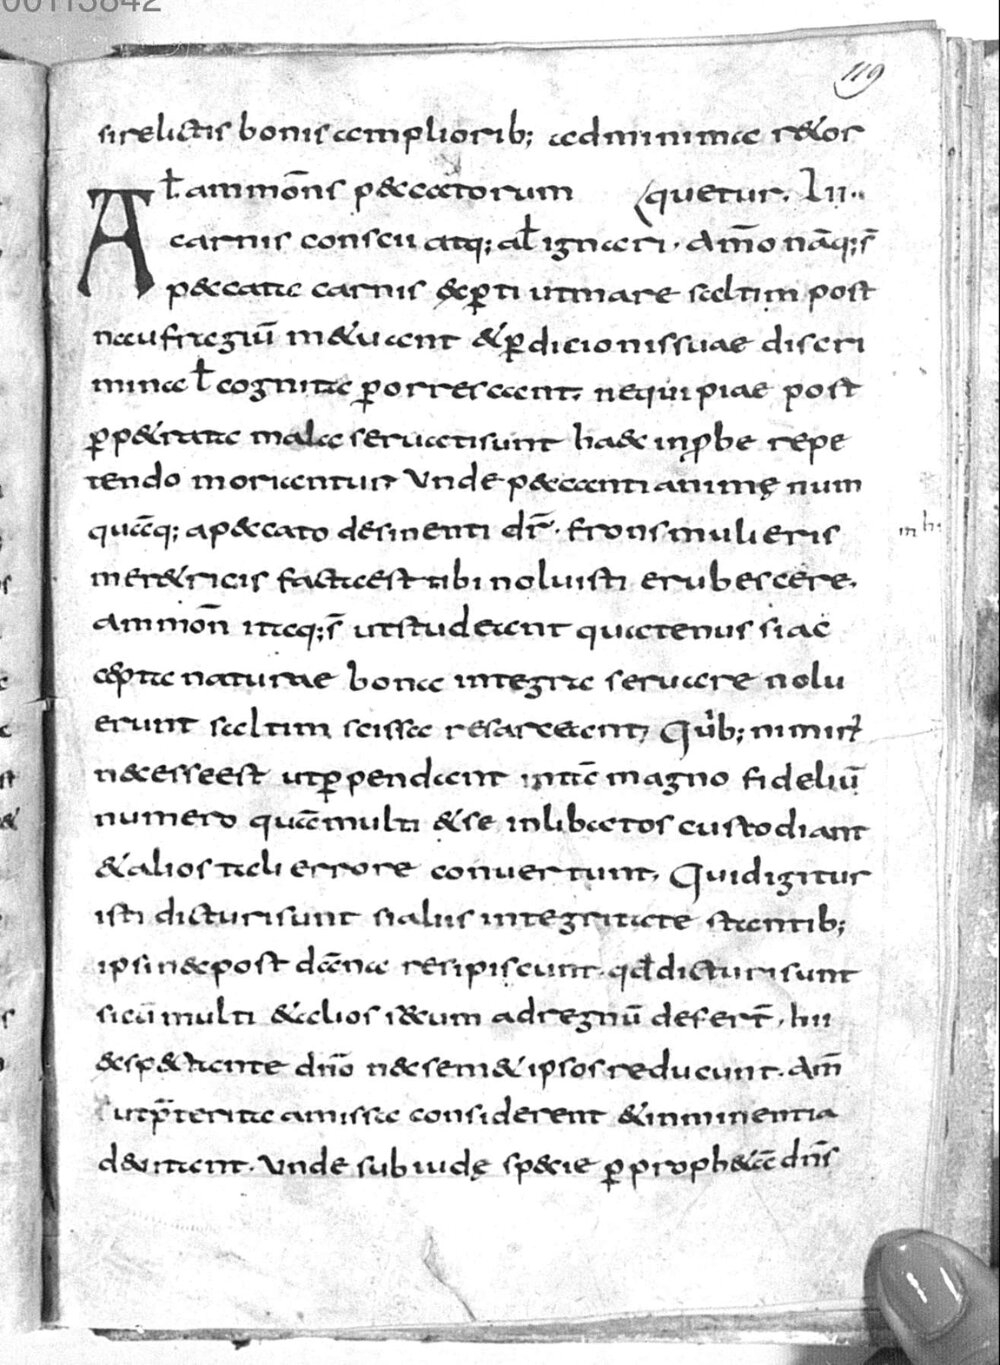 00113842
119
si relictis bonis amplioribus; ad minima retor
Al ammoñs peccatorum (quetur. lii..
carnis conscii atq; al ignari. Am̄o nāq; s̄
peccata carnis exꝑti ut mare saltim post
naufragiū metuant & ꝑdicionis suae discri
mina l̄ cognita ꝑorrescant. nequi piae post
ꝑpetrata mala seruati sunt haec inꝓbe repe
tendo moriantur Vnde peccanti animę num
quāq; a peccato desinenti dr̄. frons mulieris
meretricis facta est tibi noluisti erubescere.
ammoñ itaq; s̄ ut studeant quatenus si ac
cepta naturae bona integra seruare nolu
erunt saltim scissa resarciant, Quib; nimirū
necesse est ut ꝑpendant in tā magno fideliū
numero quā multi & se inlibatos custodiant
& alios ab errore conuertunt, Quid igitur
isti dicturi sunt si aliis integritate stantib;
ipsi nec post dāna resipiscunt. qd̄ dicturi sunt
si cū multi & alios secum ad regnū defert̄, hii
exspectante dn̄o nec semet ipsos reducunt. Am̄
ut p̄terita amissa considerent & inminentia
deuitent. Vnde sub iudę specie ꝑ prophetā dn̄s